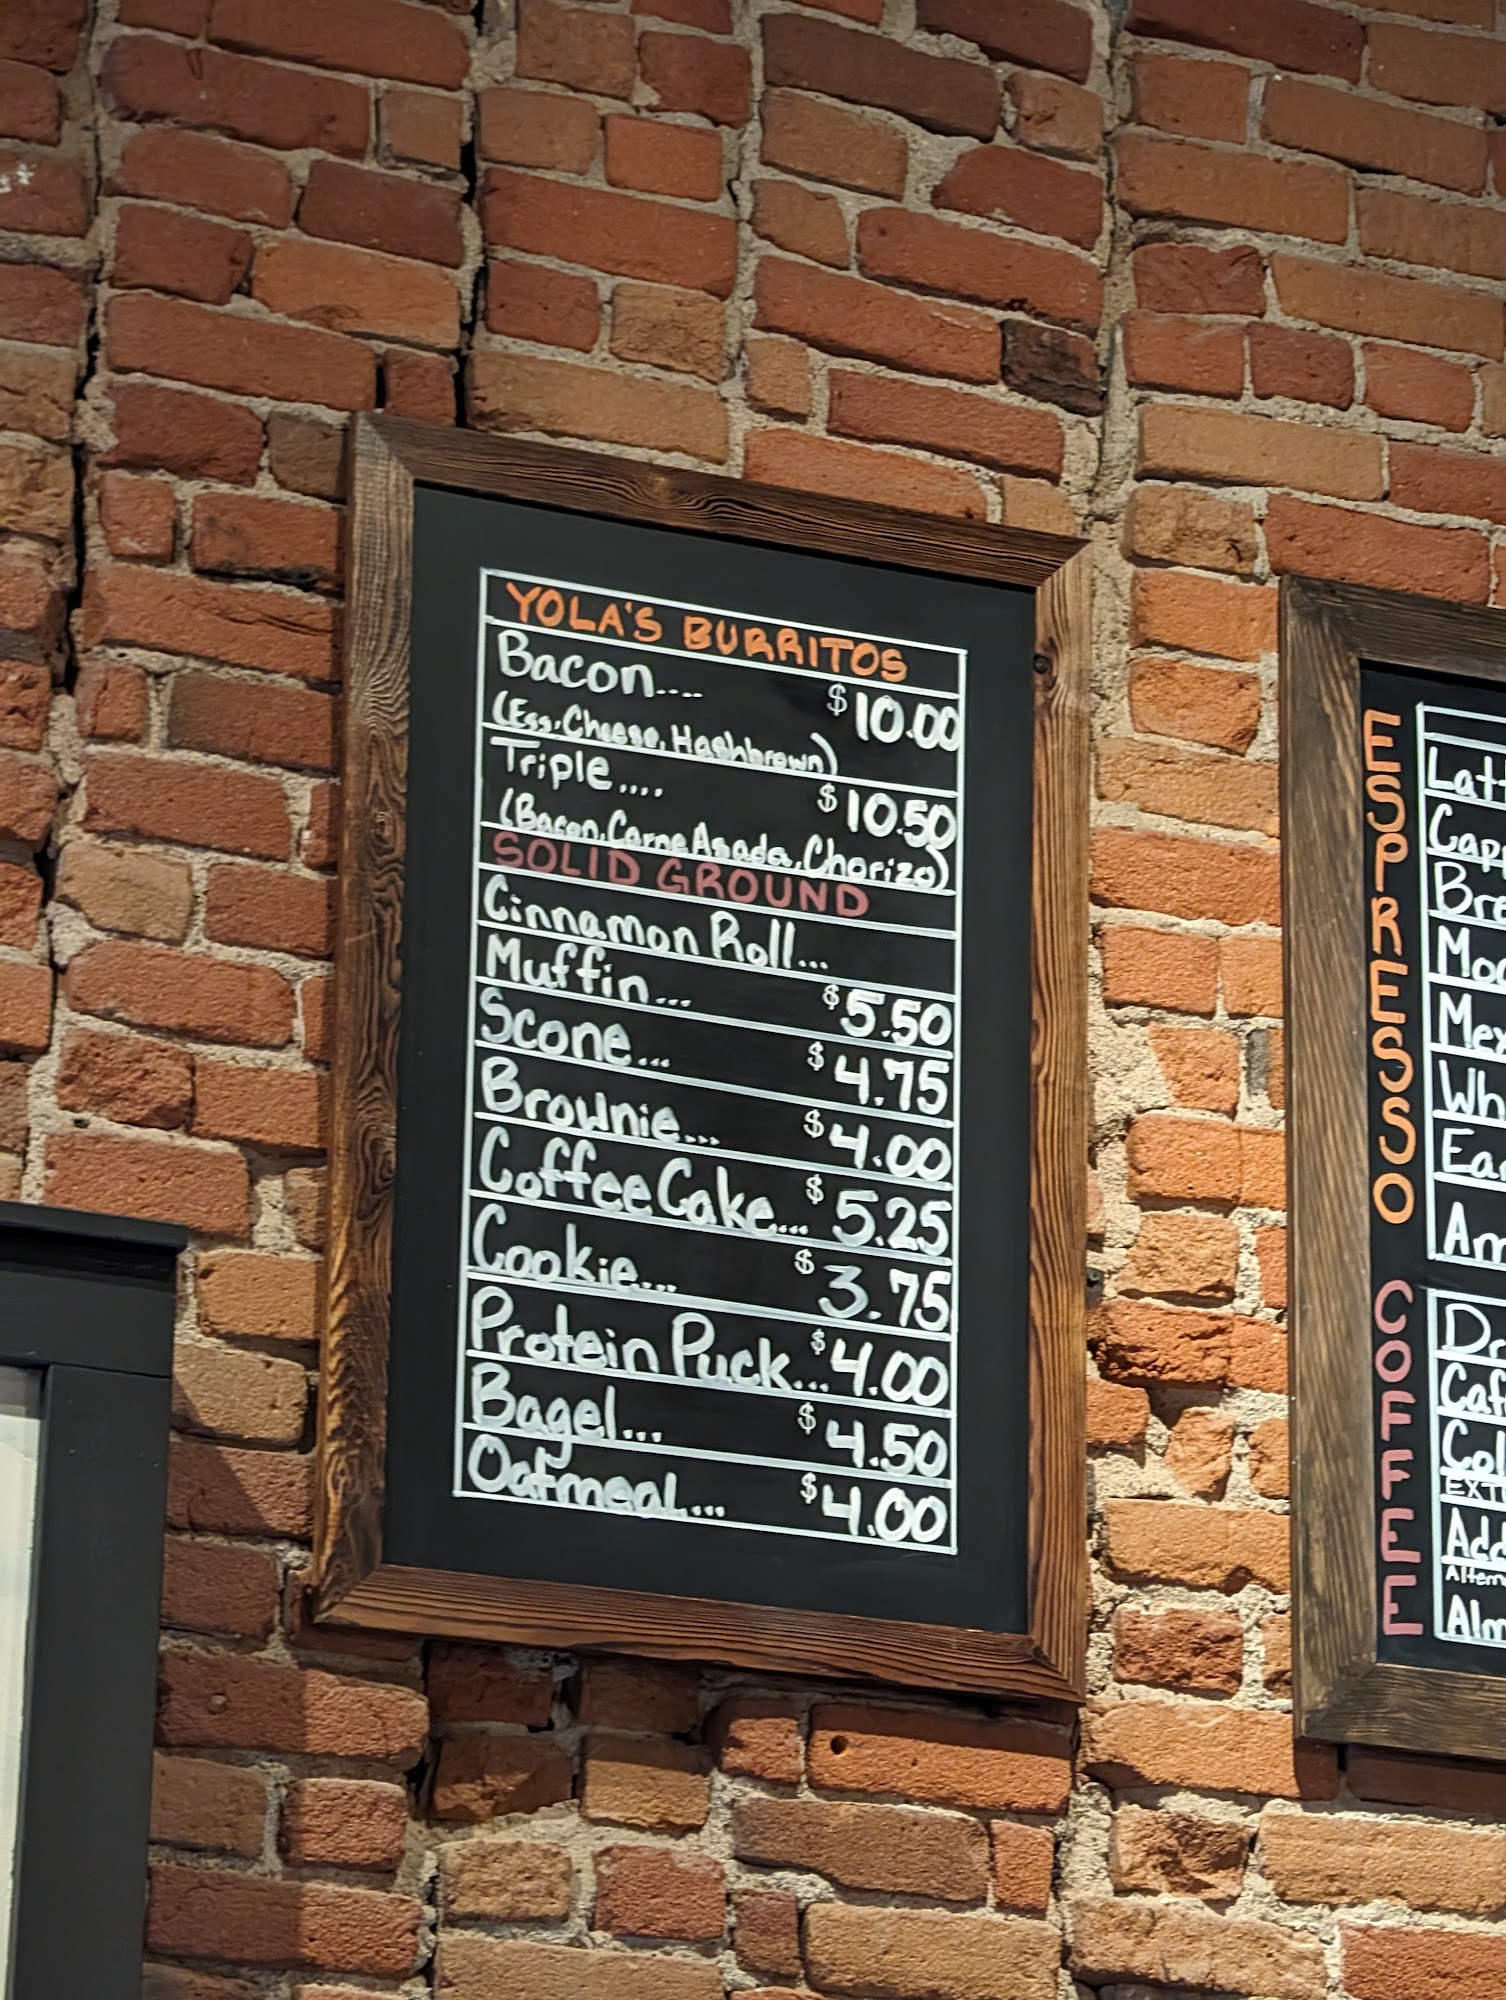 YOLA'S BURRITOS
Bacon.... $10.00
(Egg, Cheese, Hashbrown)
Triple.... $10.50
(Bacon, Carne Asada, Chorizo)
SOLID GROUND
Cinnamon Roll...
Muffin... $5.50
Scone... $4.75
Brownie... $4.00
Coffee Cake... $5.25
Cookie... $3.75
Protein Puck... $4.00
Bagel... $4.50
Oatmeal... $4.00
ESPRESSO
COFFEE